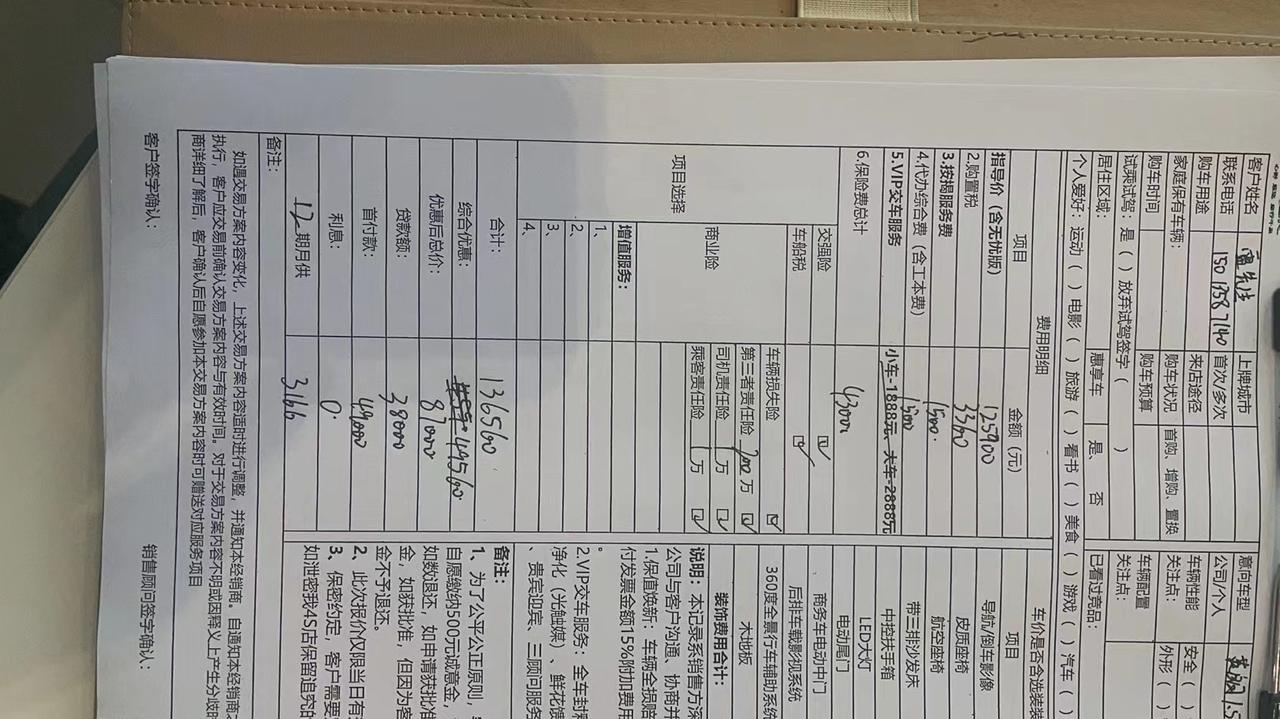 客户姓名 雷先生 上牌城市 意向车型
联系电话 150 1358 7140 首次/多次 公司/个人
购车用途 来店途径 车辆性能 安全（
家庭保有车辆： 购车状况 首购、增购、置换 关注点： 外形（
购车时间 购车预算 车辆配置
试乘试驾：是（ ）放弃试驾签字（ ） 关注点：
居住区域： 惠享车 是、否 已看过竞品：
个人爱好：运动（ ）电影（ ）旅游（ ）看书（ ）美食（ ）游戏（ ）汽车（
费用明细 车价是否含选装装
项目 金额（元） 项目
指导价（含无忧版） 125900 导航/倒车影像
2.购置税 3360 皮质座椅
3.按揭服务费 1500 航空座椅
4.代办综合费（含工本费） 1500 带三排沙发床
5.VIP交车服务 小车-1888元、大车-2888元 中控扶手箱
LED大灯
6.保险费总计 4300 电动尾门
商务车电动中门
项目选择 交强险 ☑ 后排车载影视系统
车船税 ☑ 360度全景行车辅助系统
商业险 车辆损失险 ☑ 木地板
第三者责任险 200 万 ☑ 装饰费用合计：
司机责任险 1 万 ☑ 说明：本记录系销售方深
乘客责任险 1 万 ☑ 公司与客户沟通、协商并
增值服务： 1.保值焕新：车辆全损赔
付发票金额15%附加费用
1、 。
2、 2.VIP交车服务：全车封釉
3、 净化（光触媒）、鲜花馈
4、 、贵宾迎宾、三顾问服务
合计： 136560 备注：
综合优惠： 49560 1、为了公平公正原则，
优惠后总价： 87000 自愿缴纳500元诚意金，
贷款额： 38000 如数退还，如申请获批准
首付款： 49000 金，如获批准，但因为客
利息： 0 金不予退还。
12 期月供 3166 2、此次报价仅限当日有
3、保密约定，客户需要
备注： 如泄密我4S店保留追究的
如遇交易方案内容变化，上述交易方案内容适时进行调整，并通知本经销商。自通知本经销商之
执行，客户应交易前确认交易方案内容与有效时间。对于交易方案内容不明或因释义上产生分歧时
商详细了解后，客户确认后自愿参加本交易方案内容时可赠送对应服务项目
客户签字确认： 销售顾问签字确认：